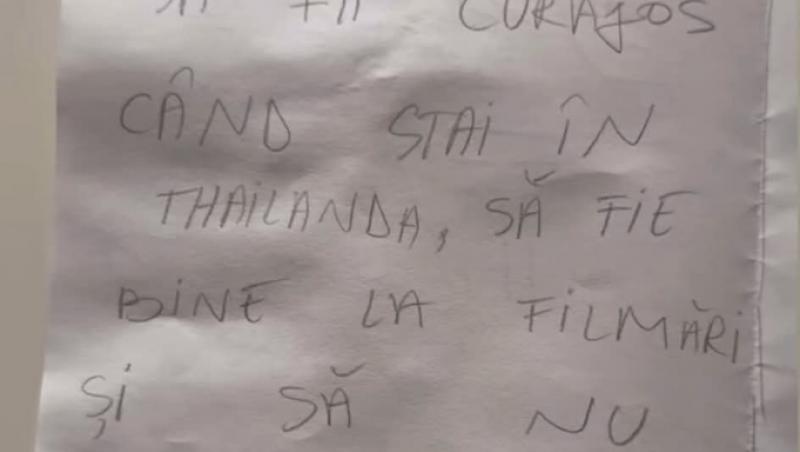 FII CURAJOS
CÂND STAI ÎN
THAILANDA, SĂ FIE
BINE LA FILMĂRI
ȘI SĂ NU